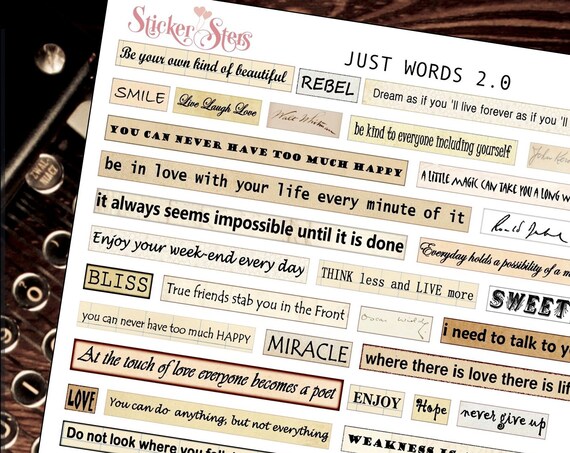 Sticker Sters
JUST WORDS 2.0
Be your own kind of beautiful
REBEL
Dream as if you 'll live forever as if you 'll
SMILE
Live Laugh Love
Walt Whitman
be kind to everyone including yourself
John
YOU CAN NEVER HAVE TOO MUCH HAPPY
A LITTLE MAGIC CAN TAKE YOU A LONG W
be in love with your life every minute of it
it always seems impossible until it is done
Everyday holds a possibility of a m
Enjoy your week-end every day
THINK less and LIVE more
SWEET
BLISS
True friends stab you in the Front
i need to talk to yo
you can never have too much HAPPY
MIRACLE
where there is love there is lif
At the touch of love everyone becomes a poet
ENJOY
Hope
never give up
LOVE
You can do anything, but not everything
WEAKNESS IS
Do not look where you fell